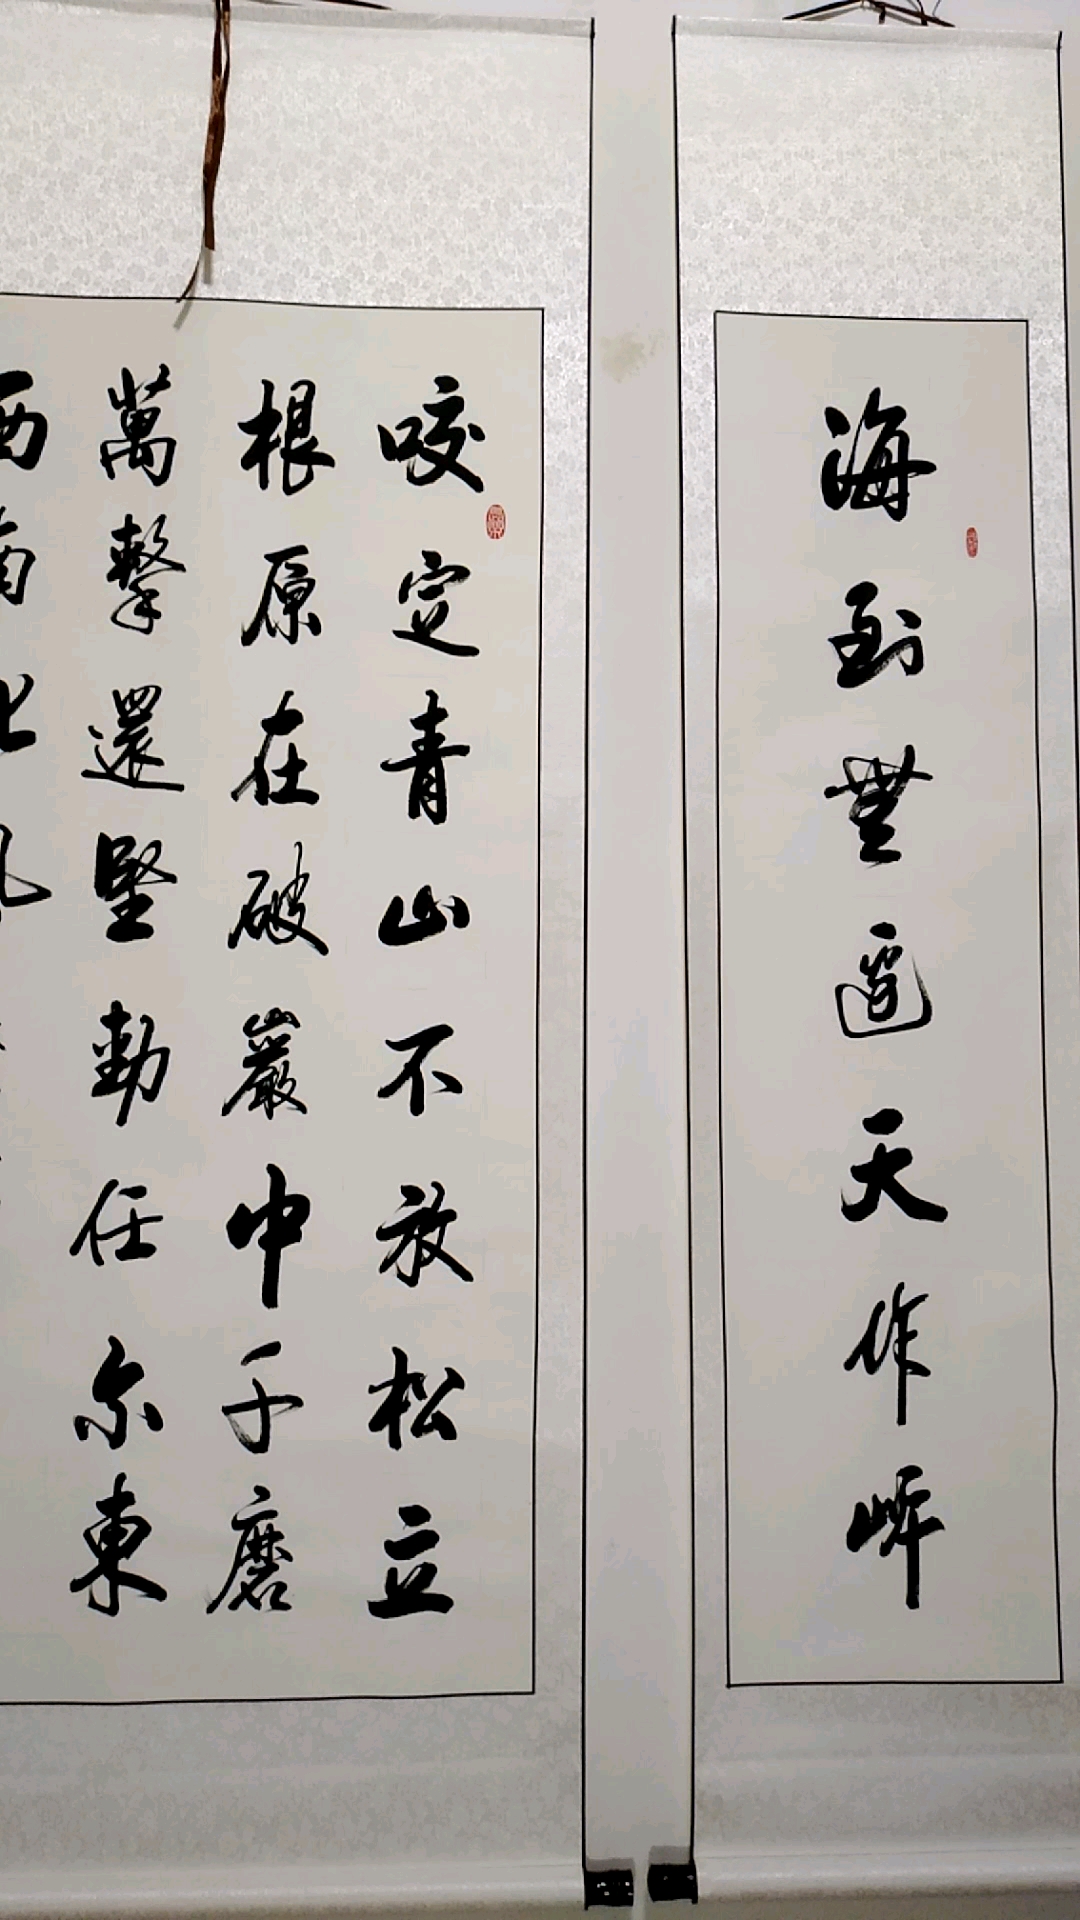 海到無邊天作岸
咬定青山不放松立
根原在破巖中千磨
萬擊還堅勁任尔東
西南北風